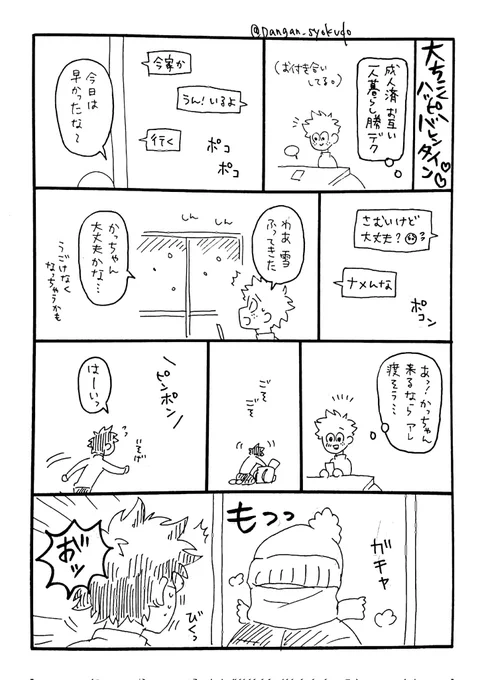 @Dangan_syokudo
大ちこく
ハッピー
バレンタイン
成人済 お互い
一人暮らし勝デク
(お付き合い
してる。)
今家か
うん!いるよ
行く
ポコ
ポコ
今日は
早かったな〜
さむいけど
大丈夫?
ナメんな
ポコン
わあ 雪
ふってきた
しん しん
かっちゃん
大丈夫かな…
うごけなく
なっちゃうかも
あっ!かっちゃん
来るなら アレ
渡そう…
ごそ
ごそ
ピンポン
はーいっ
いそげ
ガチャ
もっっ
びくっ